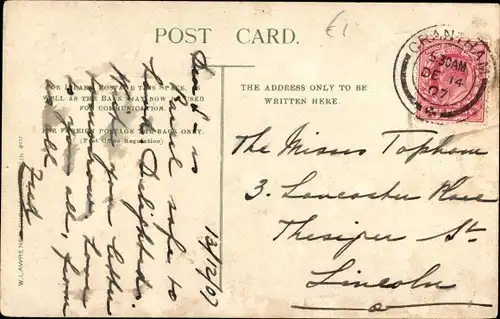 £1
POST CARD.
FOR INLAND POSTAGE THIS SPACE, AS
WELL AS THE BACK MAY NOW BE USED
FOR COMMUNICATION.
FOR FOREIGN POSTAGE THE BACK ONLY.
(Post Office Regulation)
THE ADDRESS ONLY TO BE
WRITTEN HERE.
GRANTHAM
30AM
DE 14
07
The Misses Topham
3. Lancaster Place
St.
Lincoln
13/12/07
safe to
hand Delighted
with you
Love
to you all, from
Fred
W. LAWRENCE